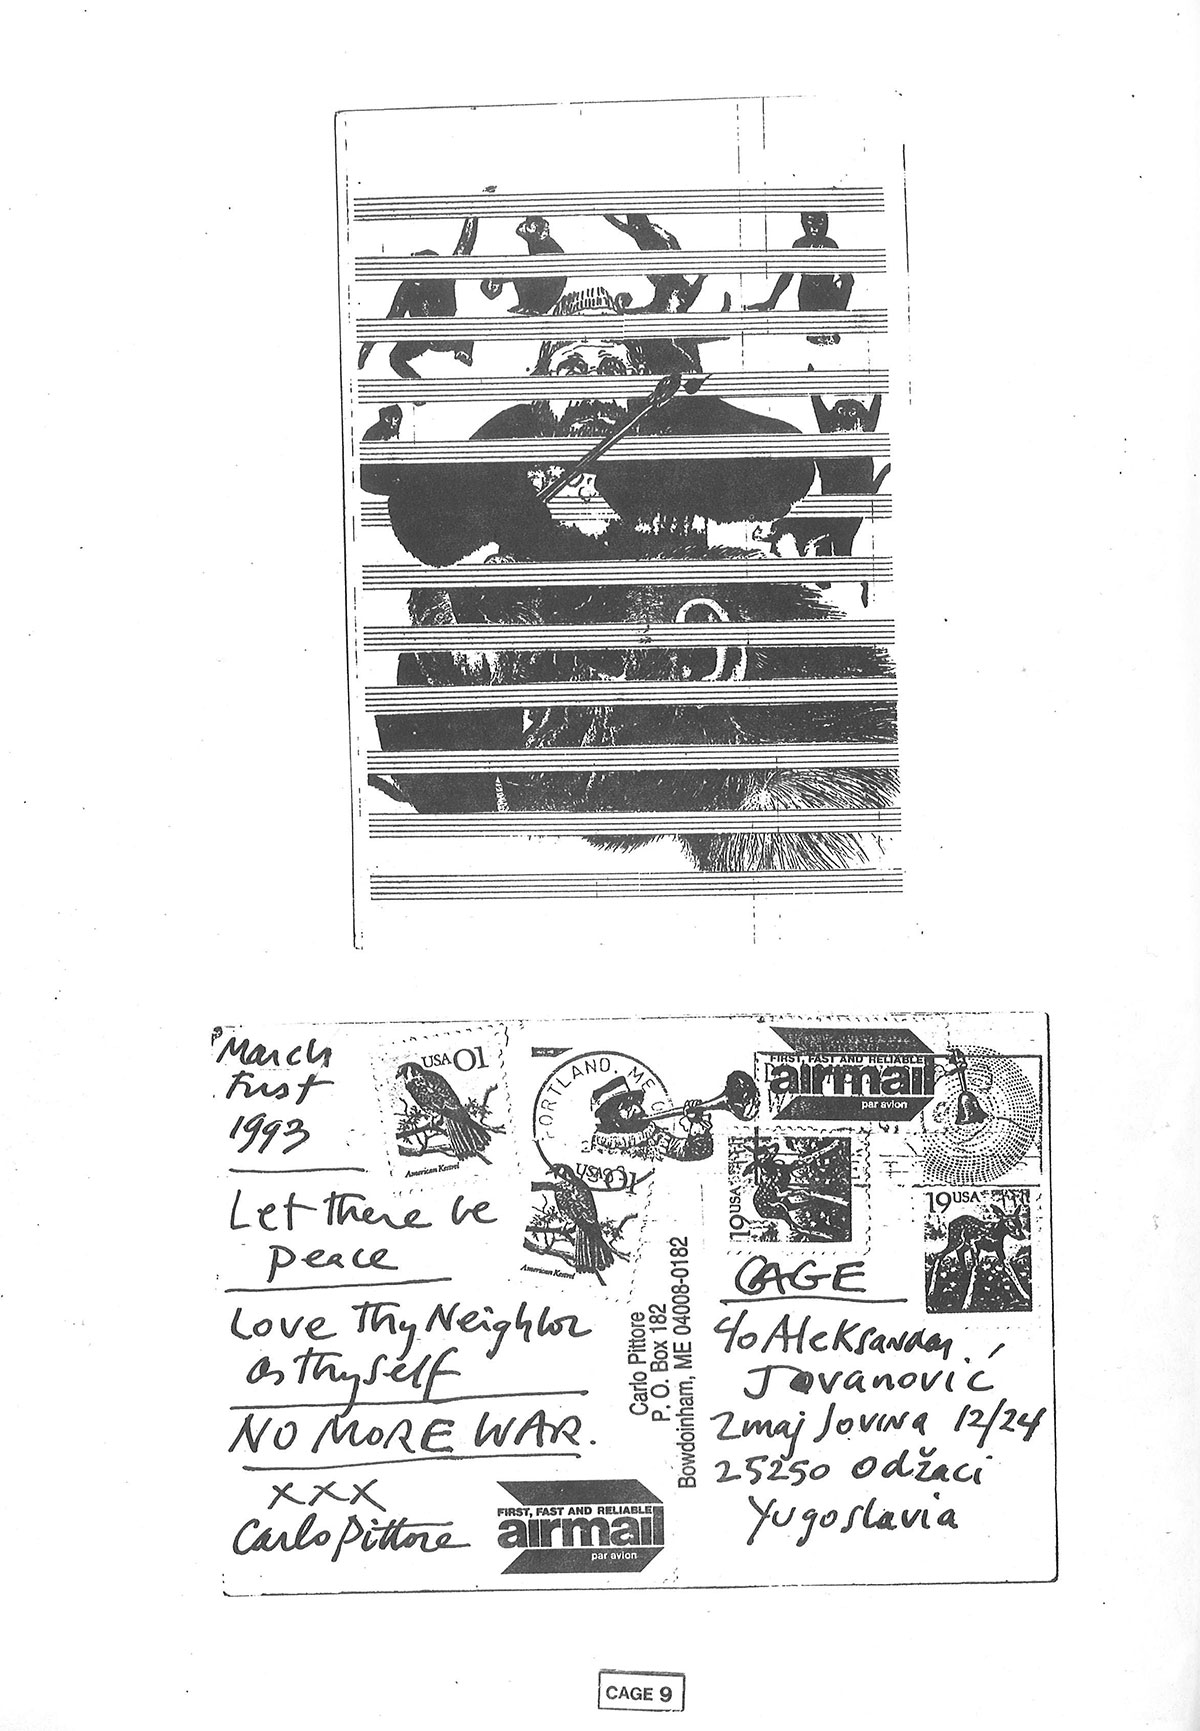 March
first
1993
Let there be
peace
Love Thy Neighbor
as thyself
NO MORE WAR.
XXX
Carlo Pittore
USA 01
American Kestrel
PORTLAND, ME
USA 01
American Kestrel
FIRST, FAST AND RELIABLE
airmail
par avion
19 USA
19 USA
Carlo Pittore
P. O. Box 182
Bowdoinham, ME 04008-0182
CAGE
c/o Aleksandar
Jovanović
Zmaj Jovina 12/24
25250 Odžaci
Yugoslavia
FIRST, FAST AND RELIABLE
airmail
par avion
CAGE 9